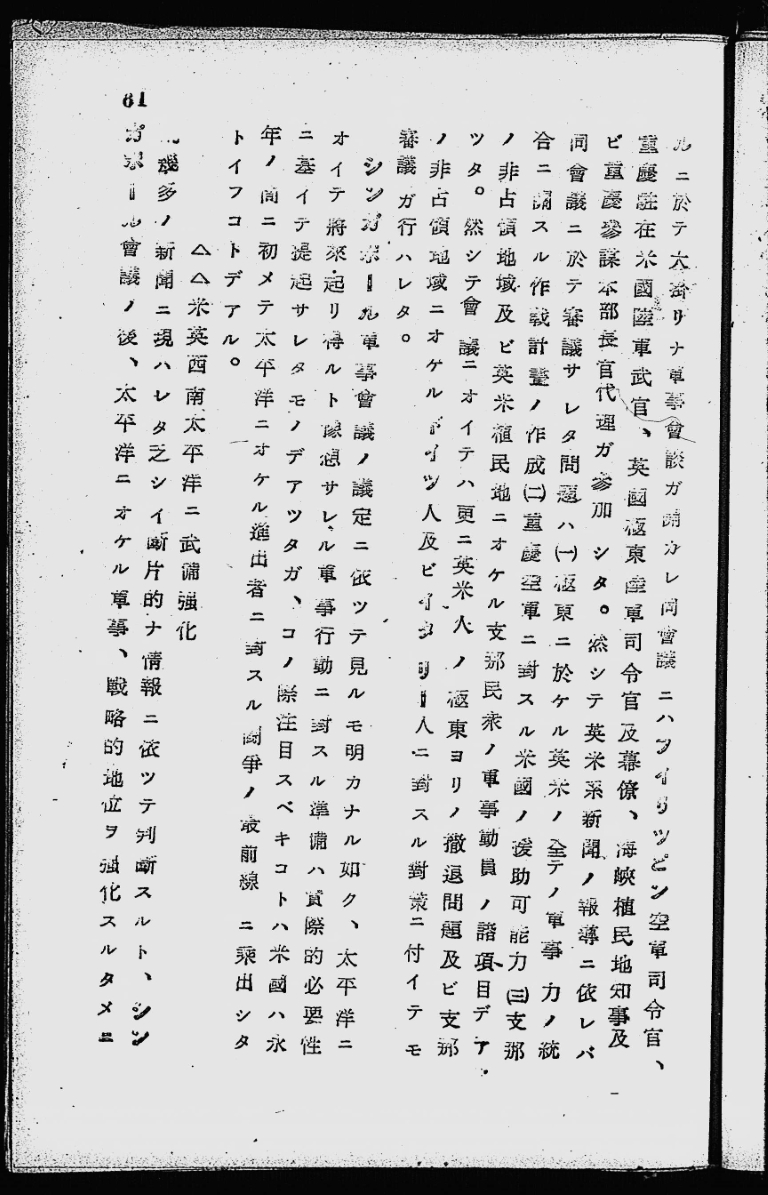 ルニ於テ大掛リナ軍事會談ガ開カレ同會議ニハフイリツピン空軍司令官、
重慶駐在米國陸軍武官、英國極東陸軍司令官及幕僚、海峽植民地知事及
ビ重慶參謀本部長官代理ガ參加シタ。然シテ英米系新聞ノ報導ニ依レバ
同會議ニ於テ審議サレタ問題ハ㈠極東ニ於ケル英米ノ全テノ軍事力ノ統
合ニ關スル作戰計畫ノ作成㈡重慶空軍ニ對スル米國ノ援助可能力㈢支那
ノ非占領地域及ビ英米植民地ニオケル支那民衆ノ軍事動員ノ諸項目デア
ツタ。然シテ會議ニオイテハ更ニ英米人ノ極東ヨリノ撤退問題及ビ支那
ノ非占領地域ニオケルドイツ人及ビイタリー人ニ對スル對策ニ付イテモ
審議ガ行ハレタ。
シンガポール軍事會議ノ議定ニ依ツテ見ルモ明カナル如ク、太平洋ニ
オイテ將來起リ得ルト豫想サレル軍事行動ニ對スル準備ハ實際的必要性
ニ基イテ提起サレタモノデアツタガ、コノ際注目スベキコトハ米國ハ永
年ノ間ニ初メテ太平洋ニオケル進出者ニ對スル鬪爭ノ最前線ニ乘出シタ
トイフコトデアル。
△△米英西南太平洋ニ武備强化
幾多ノ新聞ニ現ハレタ乏シイ斷片的ナ情報ニ依ツテ判斷スルト、シン
ガポール會議ノ後、太平洋ニオケル軍事、戰略的地位ヲ强化スルタメニ
61